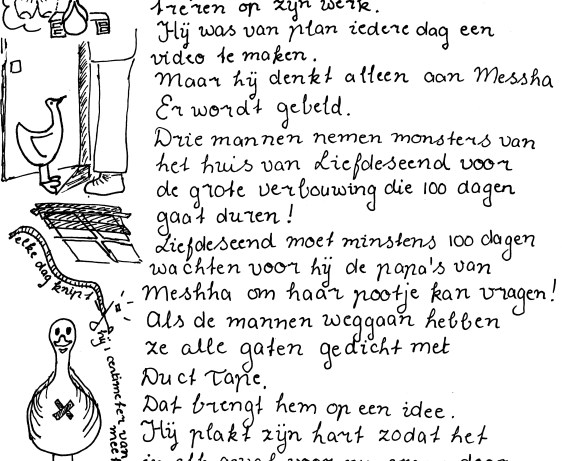 treren op zijn werk.
Hij was van plan iedere dag een
video te maken.
Maar hij denkt alleen aan Messha
Er wordt gebeld.
Drie mannen nemen monsters van
het huis van Liefdeseend voor
de grote verbouwing die 100 dagen
gaat duren!
Liefdeseend moet minstens 100 dagen
wachten voor hij de papa's van
Meshha om haar pootje kan vragen!
Als de mannen weggaan hebben
ze alle gaten gedicht met
Duct Tape.
Dat brengt hem op een idee.
Hij plakt zijn hart zodat het
elke dag knipt
hij 1 centimeter van